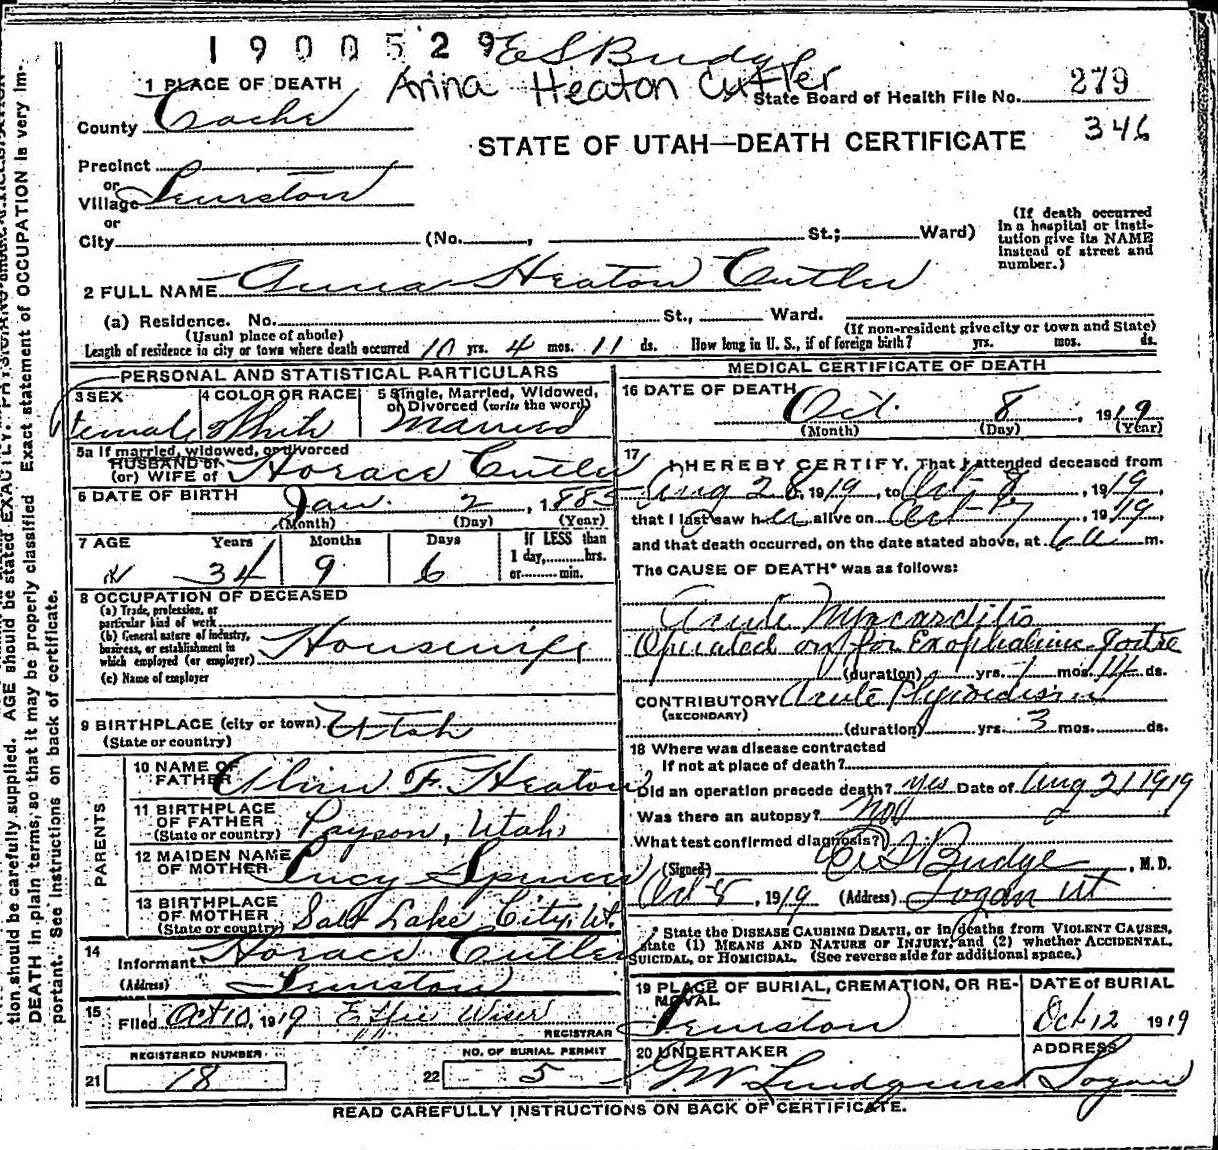 1900529 E S Budge
1 PLACE OF DEATH Arina Heaton Cutler
State Board of Health File No. 279
County Cache
STATE OF UTAH—DEATH CERTIFICATE 346
Precinct
or
Village Lewiston
or
City (No. , St.; Ward)
(If death occurred in a hospital or insti-
tution give its NAME
instead of street and
number.)
2 FULL NAME Heaton Cutler
(a) Residence. No. St., Ward.
(Usual place of abode) (If non-resident give city or town and State)
Length of residence in city or town where death occurred 10 yrs. 4 mos. 11 ds. How long in U. S., if of foreign birth? yrs. mos. ds.
PERSONAL AND STATISTICAL PARTICULARS
3 SEX Female
4 COLOR OR RACE White
5 Single, Married, Widowed,
or Divorced (write the word)
Married
5a If married, widowed, or divorced
HUSBAND of
(or) WIFE of Horace Cutler
6 DATE OF BIRTH Jan. 2, 1885
(Month) (Day) (Year)
7 AGE Years Months Days If LESS than
34 9 6 1 day, hrs.
or min.
8 OCCUPATION OF DECEASED
(a) Trade, profession, or
particular kind of work
(b) General nature of industry,
business, or establishment in
which employed (or employer) Housewife
(c) Name of employer
9 BIRTHPLACE (city or town) Utah
(State or country)
PARENTS
10 NAME OF
FATHER F. Heaton
11 BIRTHPLACE
OF FATHER
(State or country) Payson, Utah
12 MAIDEN NAME
OF MOTHER Lucy Spencer
13 BIRTHPLACE
OF MOTHER
(State or country) Salt Lake City, Ut.
14 Informant Horace Cutler
(Address) Lewiston
15 Filed Oct 10, 1919 Effie Wiser
REGISTRAR
REGISTERED NUMBER NO. OF BURIAL PERMIT
21 18 22 5
MEDICAL CERTIFICATE OF DEATH
16 DATE OF DEATH Oct. 8, 1919
(Month) (Day) (Year)
17 I HEREBY CERTIFY, That I attended deceased from
Aug 28, 1919, to Oct 8, 1919,
that I last saw her alive on Oct 7, 1919,
and that death occurred, on the date stated above, at 6 a m.
The CAUSE OF DEATH* was as follows:
Acute Myocarditis
Operated on for Exophthalmic goitre
(duration) yrs. 1 mos. 14 ds.
CONTRIBUTORY Acute
(SECONDARY)
(duration) yrs. 3 mos. ds.
18 Where was disease contracted
If not at place of death?
Did an operation precede death? yes Date of Aug 21 1919
Was there an autopsy? No
What test confirmed diagnosis?
(Signed) E S Budge, M.D.
Oct 8, 1919 (Address) Logan Ut
* State the DISEASE CAUSING DEATH, or in deaths from VIOLENT CAUSES,
state (1) MEANS AND NATURE OF INJURY, and (2) whether ACCIDENTAL,
SUICIDAL, or HOMICIDAL. (See reverse side for additional space.)
19 PLACE OF BURIAL, CREMATION, OR RE-
MOVAL
Lewiston
DATE of BURIAL
Oct 12 1919
20 UNDERTAKER ADDRESS
Lindquist Logan
READ CAREFULLY INSTRUCTIONS ON BACK OF CERTIFICATE.
tion should be carefully supplied. AGE should be stated EXACTLY.
DEATH in plain terms, so that it may be properly classified. Exact statement of OCCUPATION is very im-
portant. See instructions on back of certificate.